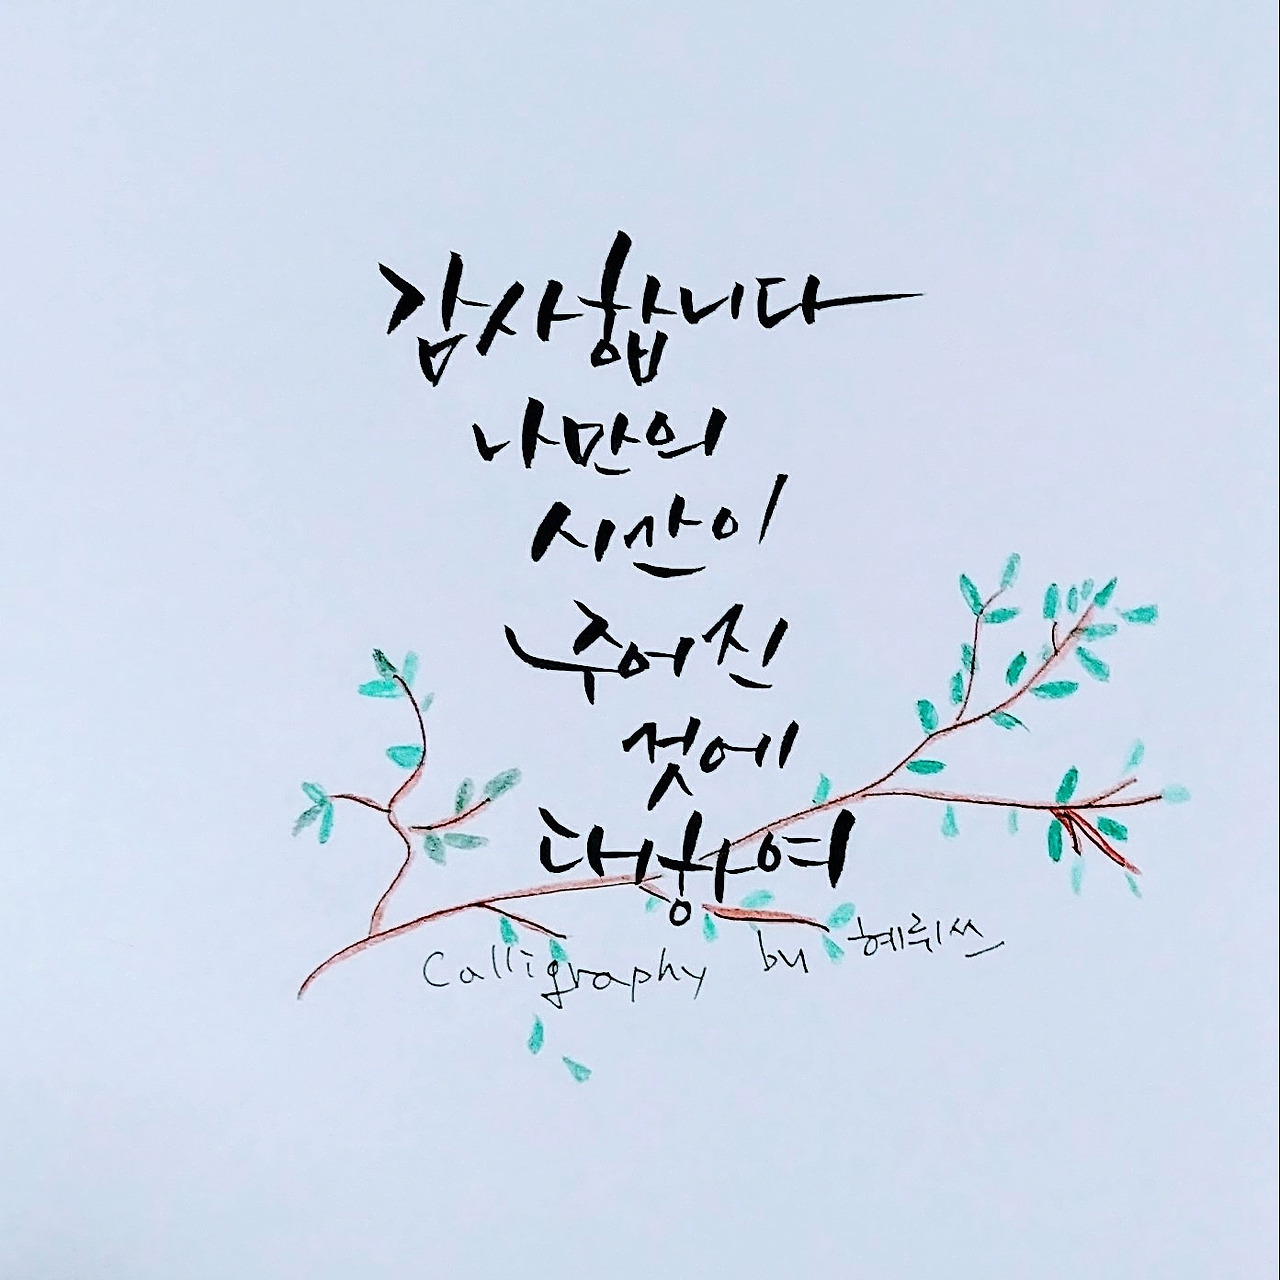 감사합니다
나만의
시간이
주어진
것에
대하여
Calligraphy by 혜뤼쓰